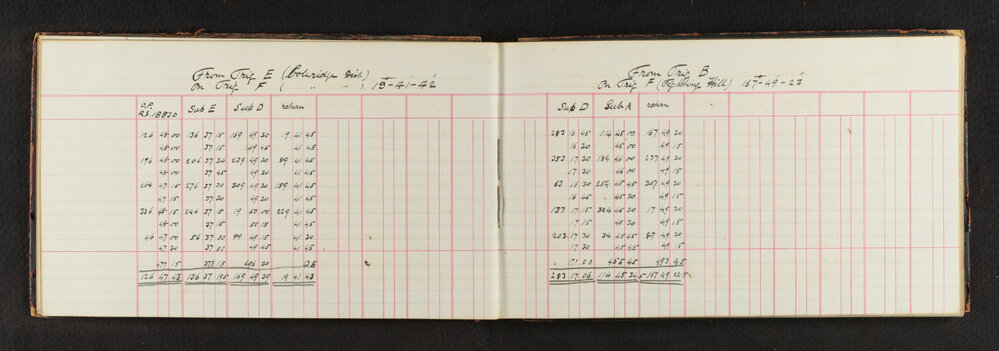 From Trig E (Coleridge Dist.)
On Trig F ( " " " ) 19-41-42
O.P.
R.S. 18830 Sub E Sub D return
126 48 00 136 37 15 169 49 30 19 41 45
48 00 37 15 49 45 41 45
196 48 00 206 37 30 239 49 30 89 41 45
48 00 37 45 49 30 41 45
266 47 15 276 37 30 309 49 30 159 41 45
47 15 37 30 49 30 41 45
336 48 15 346 37 15 19 50 00 229 41 45
48 00 37 15 50 15 41 45
46 47 00 56 37 00 89 49 15 41 30
47 30 37 00 49 45 41 45
477 15 373 15 496 30
126 47 43 136 37 19.5 169 49 39 19 41 43
From Trig B
On Trig F (Fighting Hill) 167-49-23
Sub D Sub A return
283 16 45 114 45 00 167 49 20
16 30 45 00 49 15
353 17 30 184 46 00 237 49 30
17 30 46 00 49 15
63 16 30 254 45 45 307 49 30
16 45 45 30 49 15
133 17 15 324 45 30 17 49 30
17 15 45 30 49 15
203 17 30 34 45 45 87 49 30
17 30 45 45 49 15
171 00 455 45 493 45
283 17 06 114 45 34.5 167 49 22.5